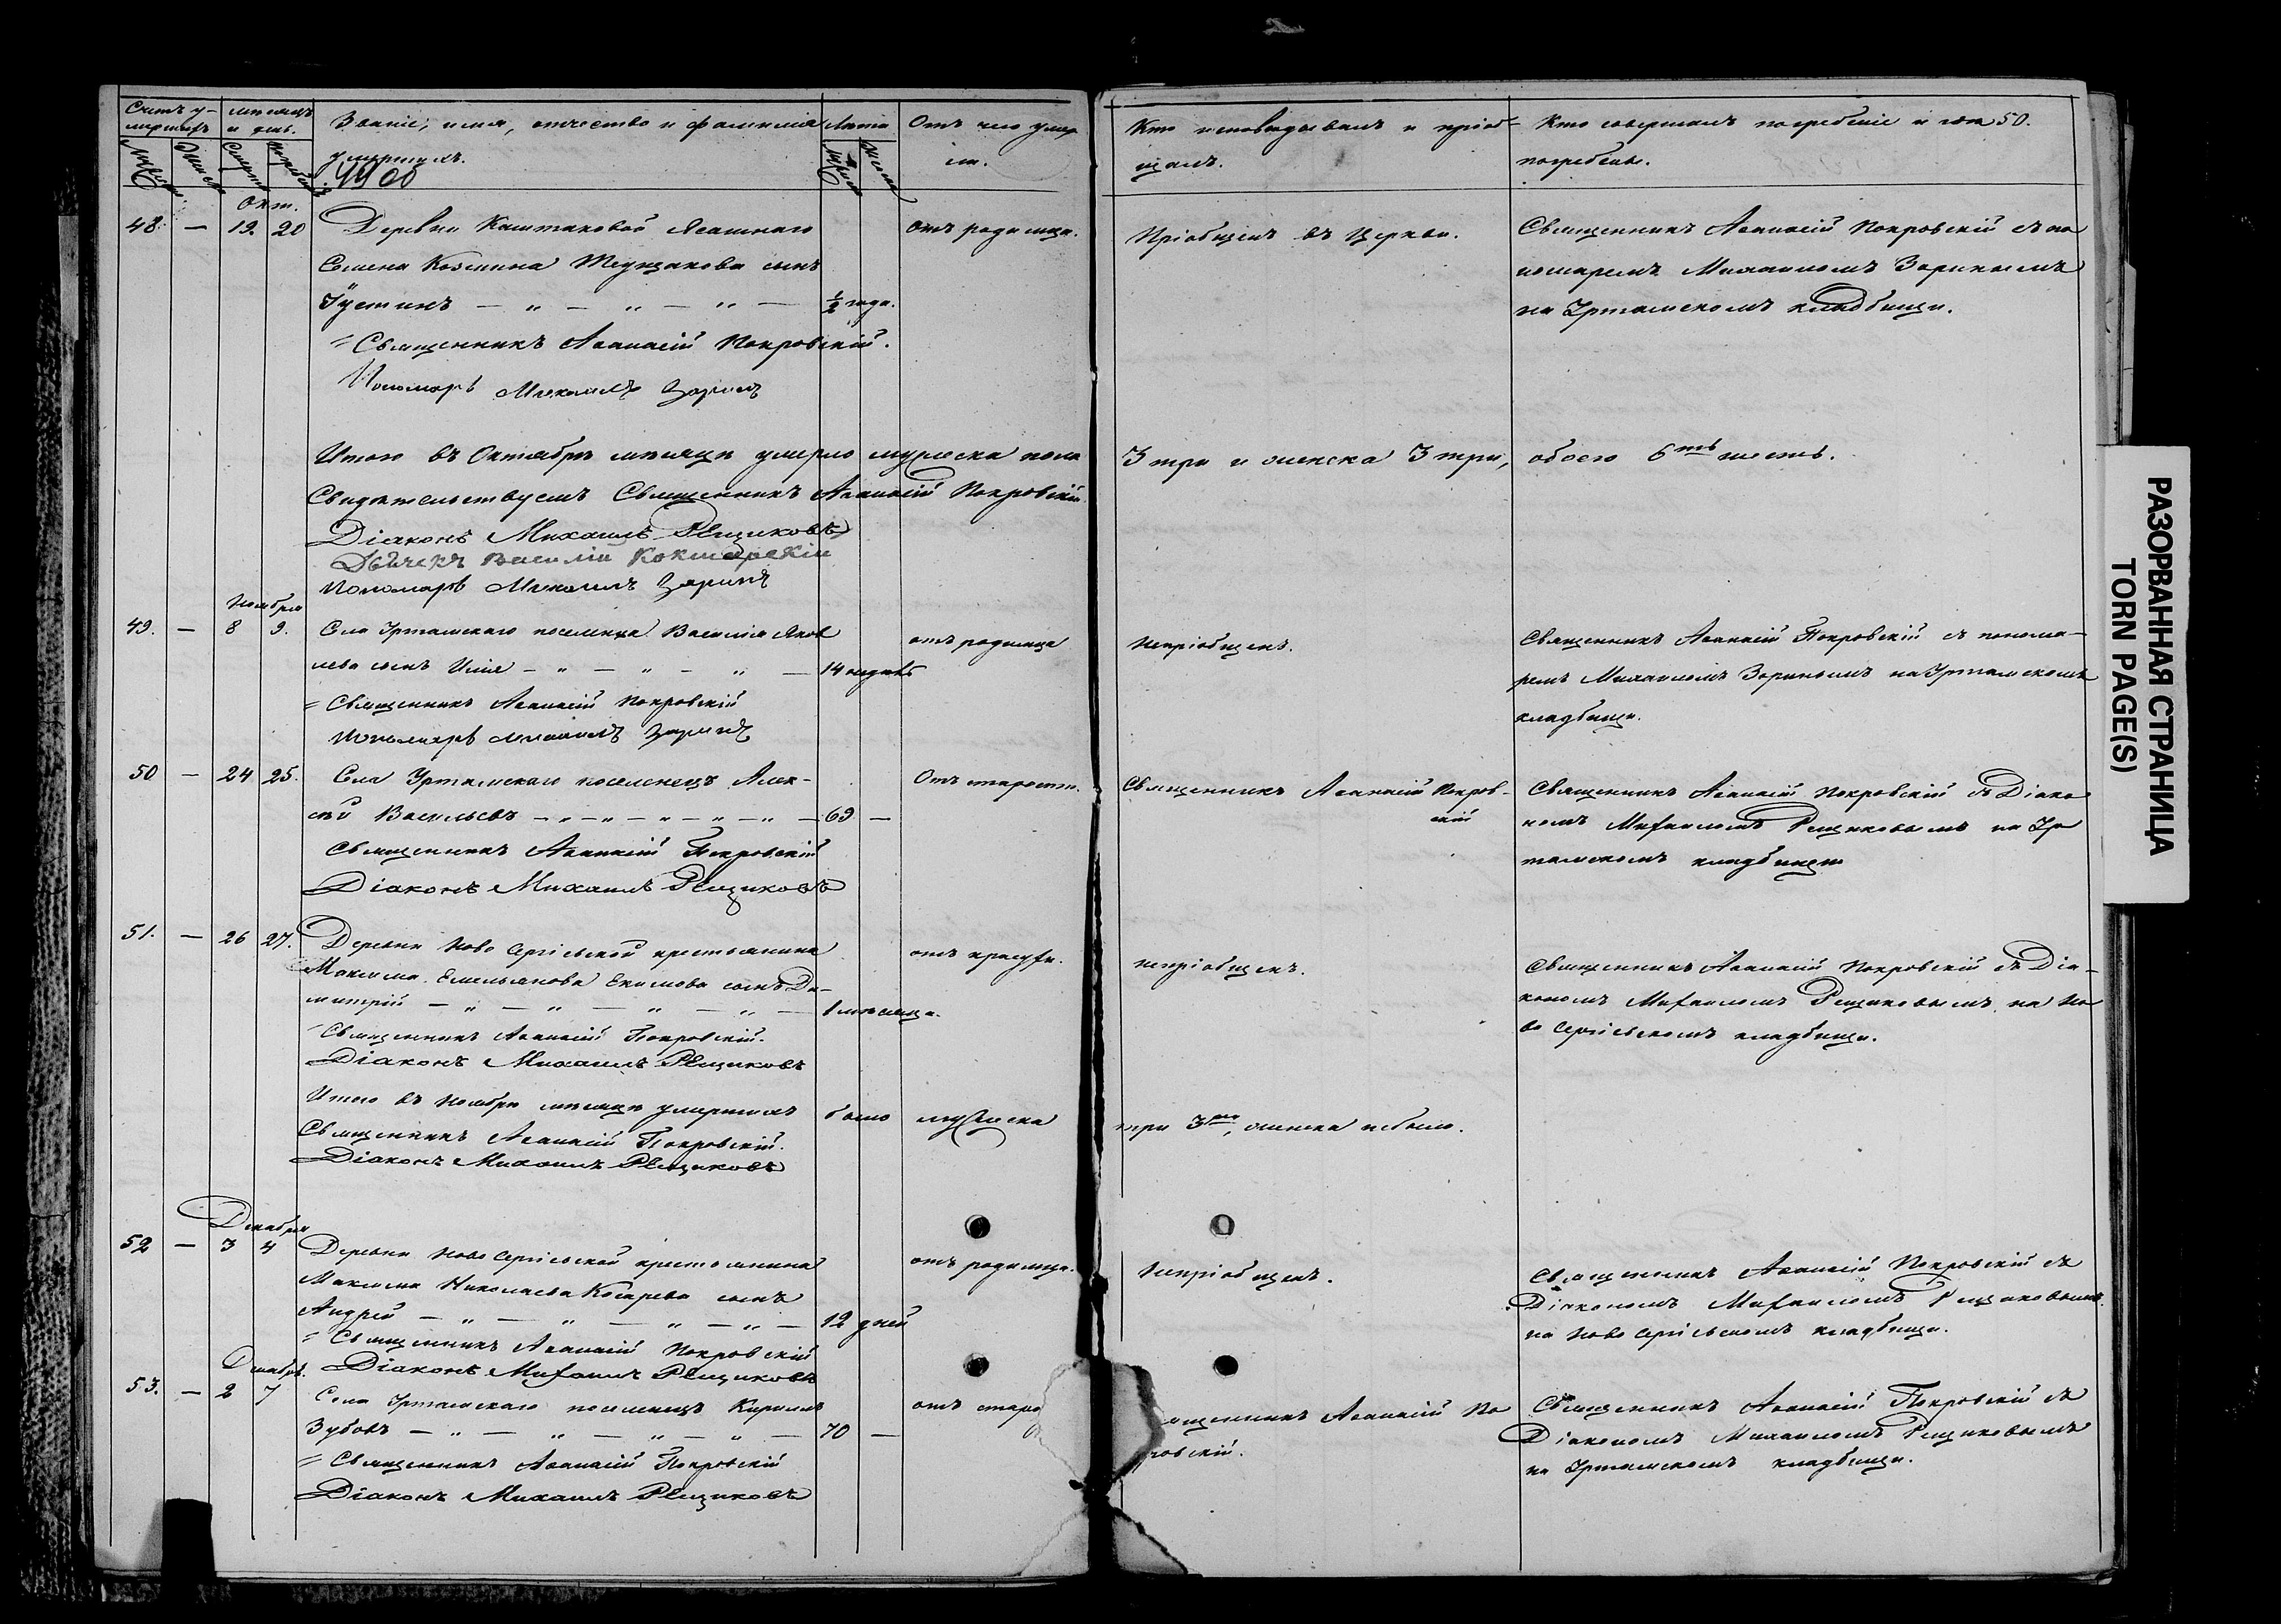 Счетъ у-
мершихъ
мѣсяцъ
и день.
Званіе, имя, отчество и фамилія
умершихъ.
Лѣта
Отъ чего умер
Кто исповѣдывалъ и пріоб-
щалъ.
Кто совершалъ погребеніе и гдѣ 50.
погребены.
Окт.
48. — 19. 20
Деревни Каштаковой Ясашнаго
Семена Козмина Теущакова сынъ
Іустинъ — „ — „ — „ — ½ года.
отъ родимца.
Пріобщенъ въ Церкви.
Священникъ Аѳанасій Покровскій съ по
номаремъ Михаиломъ Заринымъ
на Уртамскомъ кладбищи.
Священникъ Аѳанасій Покровскій.
Пономарь Михаилъ Заринъ
Итого въ Октябрѣ мѣсяцѣ умерло мужеска пола 3 три и женска 3 три, обоего 6ть шесть.
Свидѣтельствуемъ Священникъ Аѳанасій Покровскій
Діаконъ Михаилъ Рещиковъ
Дьячекъ Василій Кокшарскій
Пономарь Михаилъ Заринъ
Ноября
49. — 8 9.
Села Уртамскаго поселенца Василія Яков
лева сынъ Илія — „ — „ — „ — 14 недѣль
отъ родимца
Непріобщенъ.
Священникъ Аѳанасій Покровскій съ понома-
ремъ Михаиломъ Заринымъ на Уртамскомъ
кладбищи.
Священникъ Аѳанасій Покровскій
Пономарь Михаилъ Заринъ
50 — 24 25.
Села Уртамскаго поселенецъ Алек-
сѣй Васильевъ — „ — „ — „ — „ — 69 —
Отъ старости.
Священникъ Аѳанасій Покров-
скій
Священникъ Аѳанасій Покровскій съ Діако
номъ Михаиломъ Рещиковымъ на Ур
тамскомъ кладбищѣ
Священникъ Аѳанасій Покровскій
Діаконъ Михаилъ Рещиковъ
51. — 26 27.
Деревни Ново Сергіевской крестьянина
Максима Емельянова Екимова сынъ Ди-
митрій — „ — „ — „ — „ — 1 мѣсяца.
отъ красухи.
непріобщенъ.
Священникъ Аѳанасій Покровскій съ Діа-
кономъ Михаиломъ Рещиковымъ на Но
во Сергіевскомъ кладбищи.
Священникъ Аѳанасій Покровскій.
Діаконъ Михаилъ Рещиковъ
Итого въ Ноябрѣ мѣсяцѣ умершихъ было мужеска три 3ри, женска небыло.
Священникъ Аѳанасій Покровскій.
Діаконъ Михаилъ Рещиковъ
Декабря
52 — 3 4
Деревни Ново Сергіевской крестьянина
Максима Николаева Косарева сынъ
Андрей — „ — „ — „ — „ — 12 дней
отъ родимца.
Непріобщенъ.
Священникъ Аѳанасій Покровскій съ
Діакономъ Михаиломъ Рещиковымъ
на Ново Сергіевскомъ кладбищи.
Священникъ Аѳанасій Покровскій
Діаконъ Михаилъ Рещиковъ
Декабрь.
53. — 2 7
Села Уртамскаго поселенецъ Кириллъ
Зубовъ — „ — „ — „ — „ — 70 —
отъ старо
щенникъ Аѳанасій По
ровскій.
Священникъ Аѳанасій Покровскій съ
Діакономъ Михаиломъ Рещиковымъ
на Уртамскомъ кладбищи.
Священникъ Аѳанасій Покровскій
Діаконъ Михаилъ Рещиковъ
РАЗОРВАННАЯ СТРАНИЦА
TORN PAGE(S)